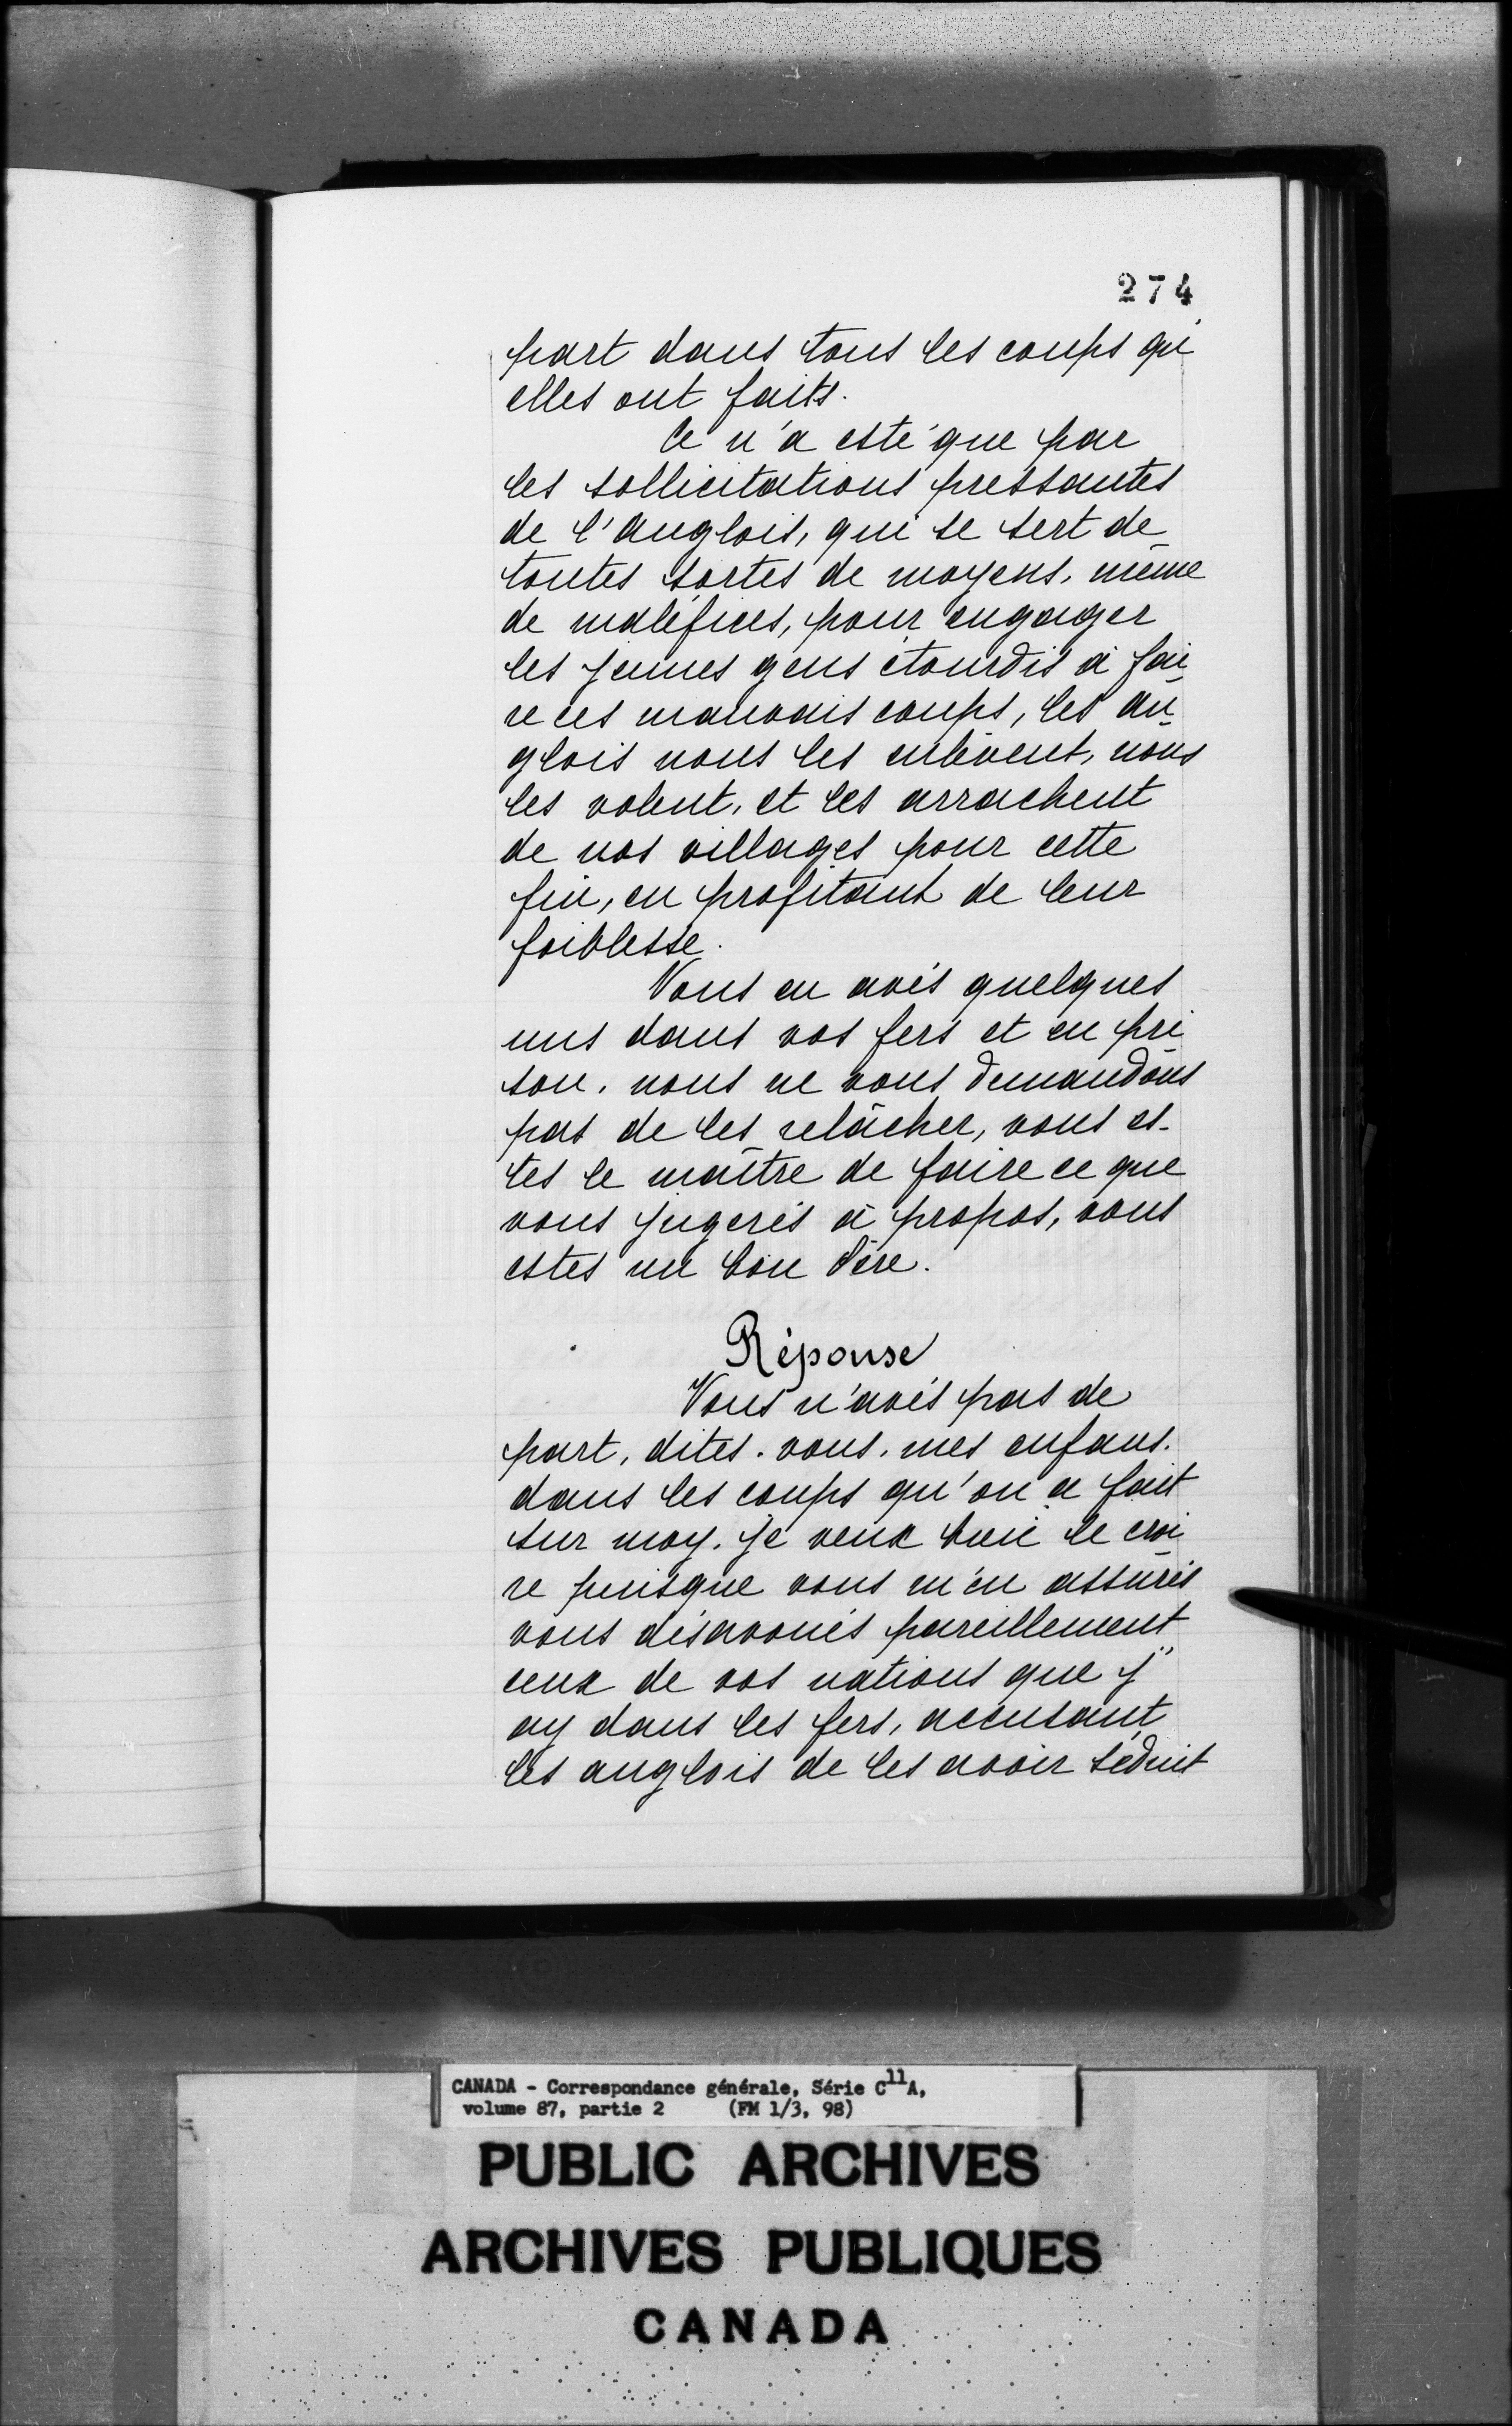 274
part dans tous les coups qu'
elles ont faits.
Ce n'a esté que par
les sollicitations pressantes
de l'anglois, qui se sert de
toutes sortes de moyens, même
de maléfices, pour engager
les jeunes gens étourdis à fai-
re ces mauvais coups, les an-
glois nous les enlèvent, nous
les volent, et les arrachent
de nos villages pour cette
fin, en profitant de leur
foiblesse.
Vous en avés quelques
uns dans vos fers et en pri-
son. nous ne vous demandons
pas de les relâcher, vous es-
tes le maître de faire ce que
vous jugerés à propos, vous
estes un bon Père.
Réponse
Vous n'avés pas de
part, dites-vous, mes enfans.
dans les coups qu'on a fait
sur moy. je veux bien le croi-
re puisque vous m'en assurés
vous désavoués pareillement
ceux de vos nations que j'
ay dans les fers, accusant
les anglois de les avoir séduit
CANADA - Correspondance générale, Série C11A,
volume 87, partie 2 (FM 1/3, 98)
PUBLIC ARCHIVES
ARCHIVES PUBLIQUES
CANADA